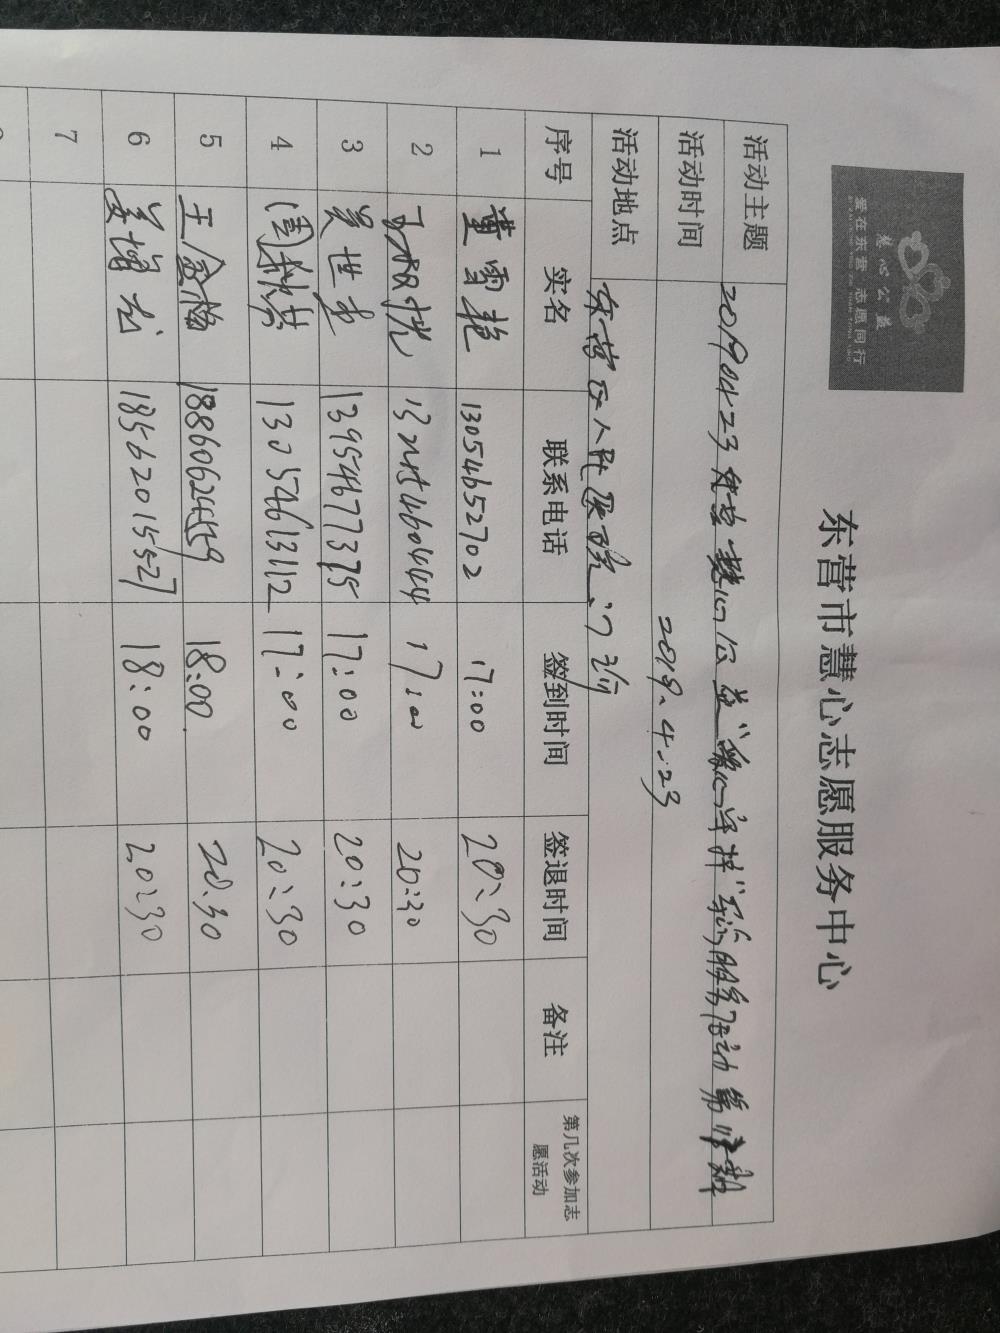 慧心公益
爱在东营 志愿同行
东营市慧心志愿服务中心
活动主题 20190423 慧心公益 服务活动 第
活动时间 2019.4.23
活动地点 东营市人民医院门诊
序号 实名 联系电话 签到时间 签退时间 备注 第几次参加志愿活动
1 董雪艳 13054652702 17:00 20:30
2 17:00 20:30
3 13954677375 17:00 20:30
4 周秋芬 13054613112 17:00 20:30
5 王金梅 18860624559 18:00 20:30
6 姜增云 18562015527 18:00 20:30
7